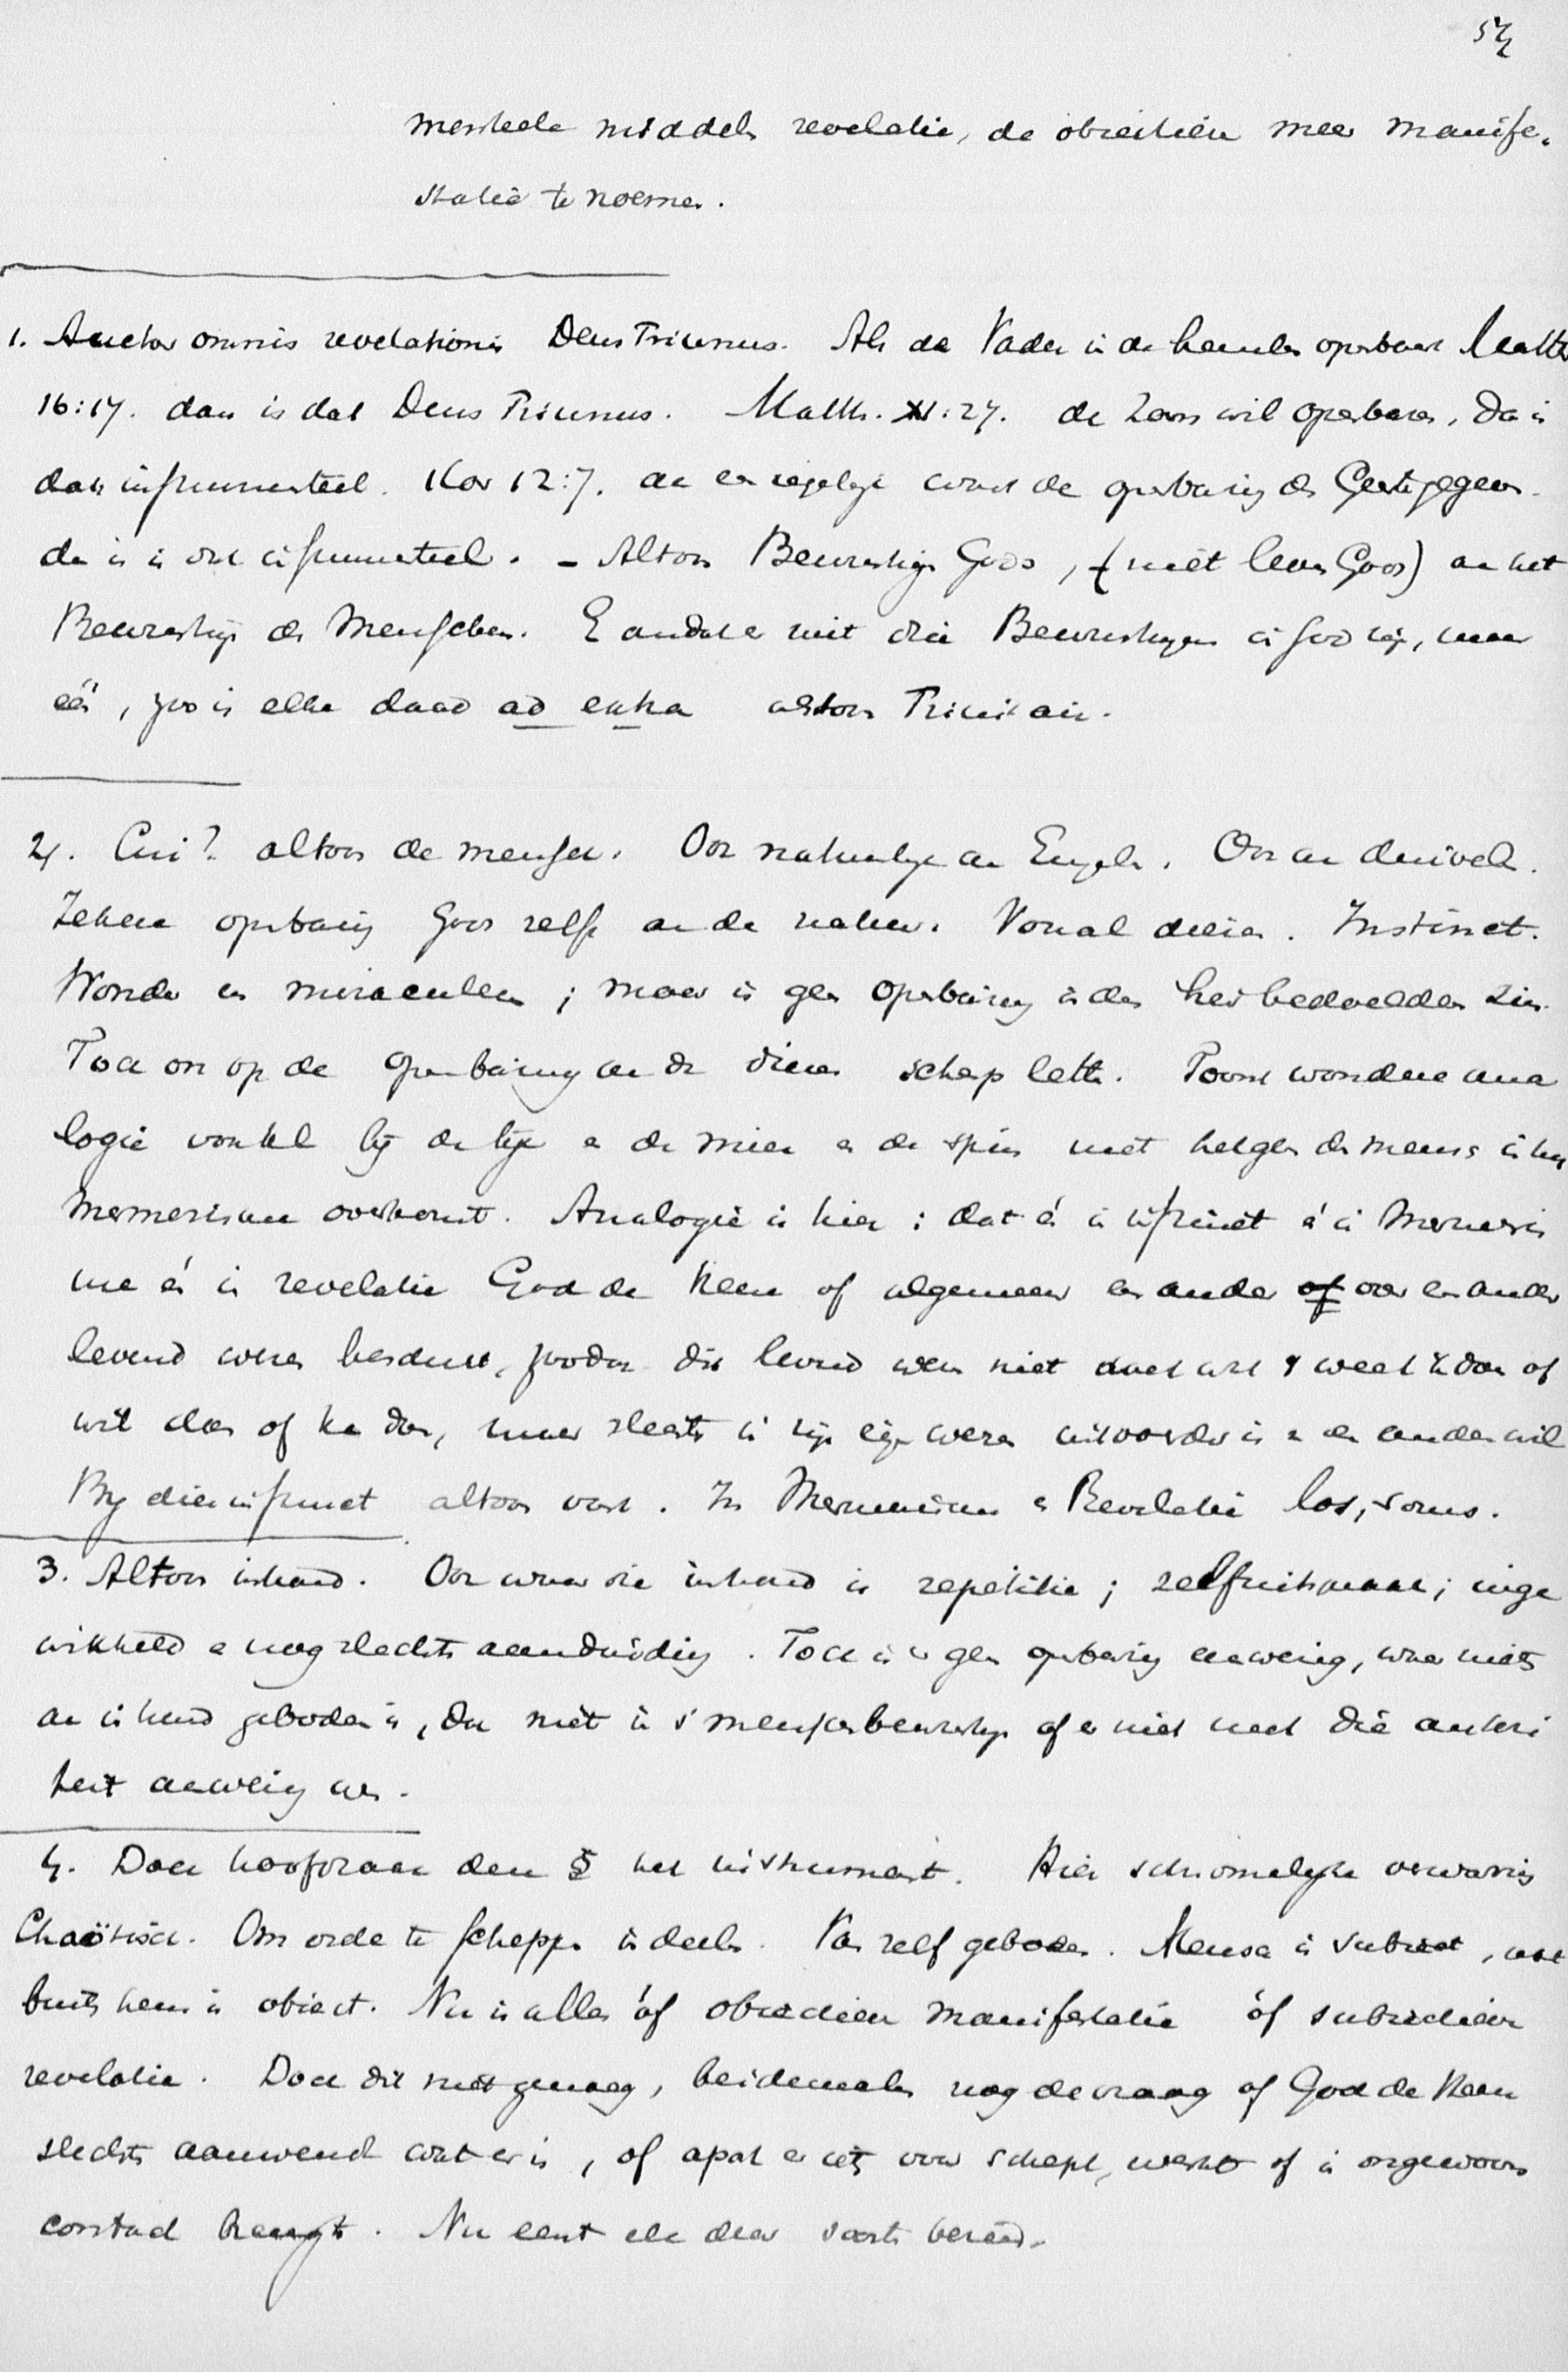 57
menteele middels revelatie, de obiectiën meer manife-
statie te noemen.
1. Auctor omnis revelationis Deus Triunus. Als de Vader in de hemelen openbaart Matth
16:17. dan is dat Deus Triunus. Matth. XI:27. de Zoon wil openbaren, Da is
dan instrumenteel. 1 Kor 12:7. aan een iegelijk wordt de openbaring des Geestes gegeven.
da is is ook instrumenteel. – Altoos Bewustzijn Gods, (niet leven Gods) aan het
Bewustzijn des Menschen. En omdat er niet drie Bewustzijnen in God zijn, maar
één, zoo is elke daad ad extra altoos Trinitair.
2. Cui? altoos de mensch. Ook natuurlijk aan Engelen. Ook aan duivelen.
Zekere openbaring Gods zelfs aan de natuur. Vooral dieren. Instinct.
Wonder en miraculeus; maar is geen openbaring in den hier bedoelden zin.
Toch ook op de openbaring aan de dieren scherp letten. Toont wondere ana
logie vooral bij de bije en de mier en de spin met hetgeen de mensch in het
mesmerisme overkomt. Analogie is hier: dat én in instinct én in Mesmeris
me én in revelatie God de Heere of algemeener een ander of over een ander
levend wezen bestuurt, zoodat dit levend wezen niet doet wat 't weet te doen of
wil doen of kan doen, maar slechts in zijn eigen wezen uitvoerder is van den ander wil
Bij dier instinct altoos vast. In Mesmerisme en Revelatie los, soms.
3. Altoos inhoud. Ook waar die inhoud is repetitie; zelfs inge
wikkeld en nog slechts aanduiding. Toch is er geen openbaring aanwezig, waar niets
aan inhoud geboden is, dat niet in 's menschenbewustzijn of er niet met die authori
teit aanwezig was.
4. Doch hoofdzaak den § het instrument. Hier schromelijke verwarring
Chaötisch. Om orde te scheppen indeelen. Van zelf geboden. Mensch is subiect, wat
buiten hem is obiect. Nu is alles óf obiectieve manifestatie óf subiectieve
revelatie. Doch dit niet genoeg, beidemalen nog de vraag of God de Heere
slechts aanwendt wat er is, of apart er iets voor schept, werkt of in ongewoon
contact brengt. Nu eerst elk dezer soorten bezien.